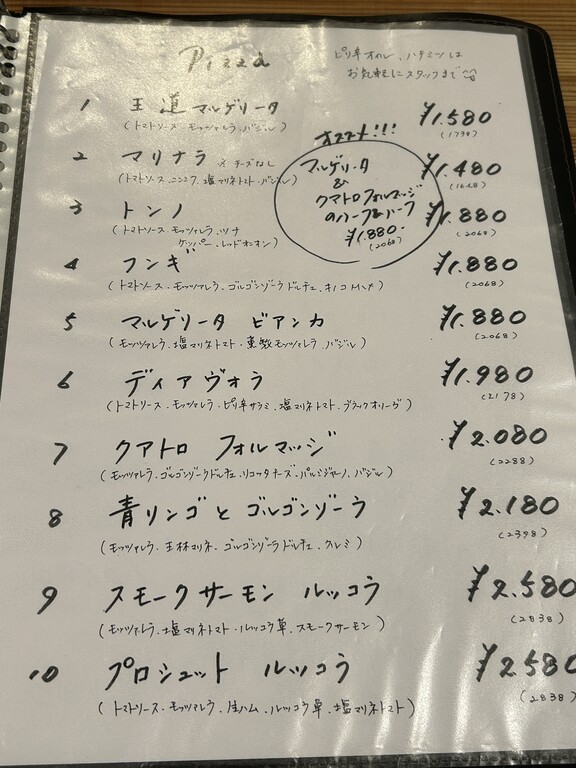 Pizza
ピリ辛オイル、ハチミツは
お気軽にスタッフまで
1 王道マルゲリータ ¥1.580
(トマトソース モッツァレラ、バジル) (1738)
2 マリナラ ※チーズなし ¥1.480
(トマトソース、ニンニク、塩マリネトマト・バジル) (1628)
オススメ!!!
マルゲリータ
&
クアトロフォルマッジ
のハーフ&ハーフ
¥1.880-
(2068)
3 トンノ ¥1.880
(トマトソース モッツァレラ、ツナ (2068)
ケッパー、レッドオニオン)
4 フンギ ¥1.880
(トマトソース・モッツァレラ・ゴルゴンゾーラドルチェ、キノコMix) (2068)
5 マルゲリータ ビアンカ ¥1.880
(モッツァレラ、塩マリネトマト・燻製モッツァレラ、バジル) (2068)
6 ディアヴォラ ¥1.980
(トマトソース・モッツァレラ・ピリ辛サラミ、塩マリネトマト、ブラックオリーヴ) (2178)
7 クアトロ フォルマッジ ¥2.080
(モッツァレラ、ゴルゴンゾーラドルチェ、リコッタチーズ・パルミジャーノ、バジル) (2288)
8 青リンゴと ゴルゴンゾーラ ¥2.180
(モッツァレラ、王林マリネ、ゴルゴンゾーラドルチェ、クルミ) (2398)
9 スモークサーモン ルッコラ ¥2.580
(モッツァレラ、塩マリネトマト・ルッコラ草、スモークサーモン) (2838)
10 プロシュット ルッコラ ¥2.580
(トマトソース・モッツァレラ、生ハム、ルッコラ草、塩マリネトマト) (2838)